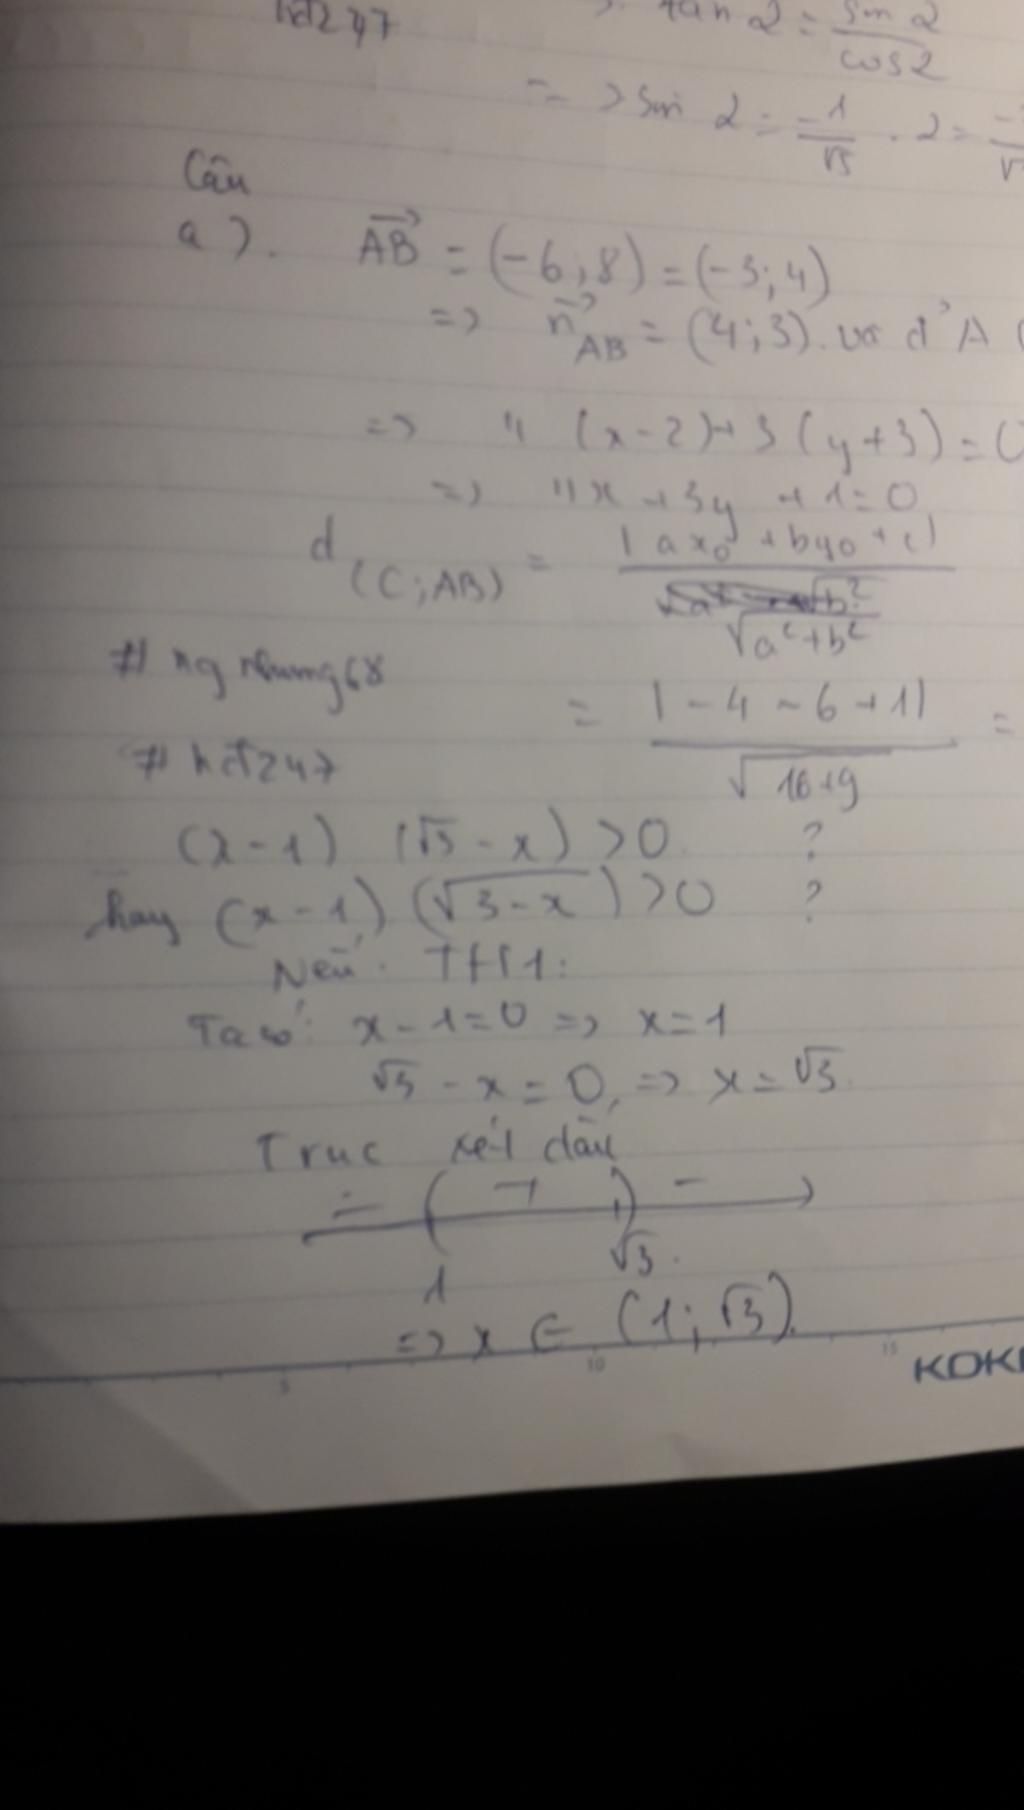 hđ247
tan 2 = sin 2 / cos 2
=> sin 2 = -1/√5 . 2 =
Câu
a). AB = (-6; 8) = (-3; 4)
=> n AB = (4; 3). và đ' A (
=> 4 (x-2) + 3 (y+3) = 0
=> 4x + 3y + 1 = 0
d (C; AB) = |ax₀ + by₀ + c| / √a²+b²
= |-4 -6 +1| / √16+9 =
#hđ247
(x-1) (√3 - x) > 0 ?
hay (x-1) (√3-x) > 0 ?
Nếu TH1:
Ta có: x - 1 = 0 => x = 1
√3 - x = 0, => x = √3
Truc xét dấu
- ( + ) -
1 √3
=> x ∈ (1; √3).
5 10 15